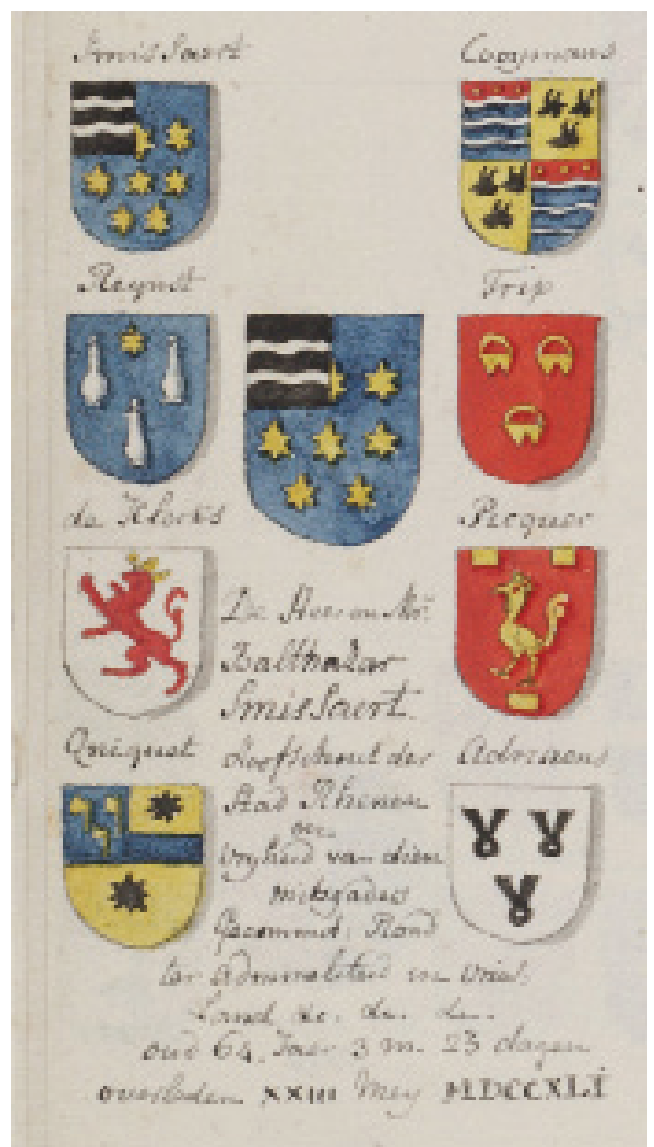 Smissaert
Cooymans
Reynst
Trip
Picquer
Quiqust
De Heer en Mr.
Balthazar
Smissaert.
Hoofschout der
Stad Rhenen
en
vryheid van dien
mitsgaders
Gecommit: Raad
ter Admiraliteit in Vries-
Land &c. &c. &c.
oud 64. Jaer 3 m. 23 dagen
overleden XXIII Mey MDCCXLI